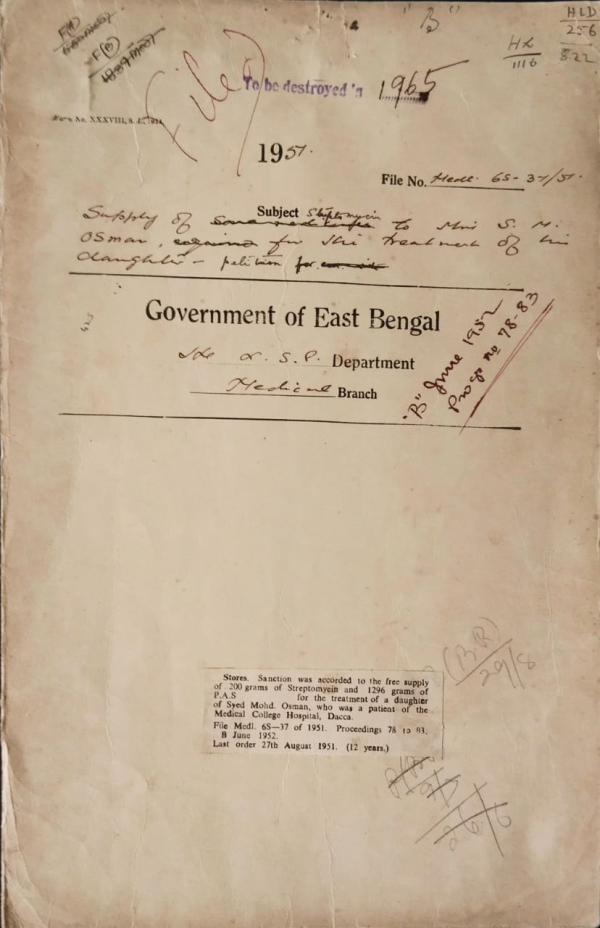 "B"
HLD
256
822
HL
1116
Filed
To be destroyed in 1965
Form No. XXXVIII,
1951.
File No. Medl. 6S-37/51.
Subject Streptomycin
Supply of to S. M.
Osman, for the treatment of his
daughter - petition
Government of East Bengal
Department
Medical Branch
"B" June 1952
Progs no 78-83
(B.R)
29/8
Stores. Sanction was accorded to the free supply
of 200 grams of Streptomycin and 1296 grams of
P.A.S for the treatment of a daughter
of Syed Mohd. Osman, who was a patient of the
Medical College Hospital, Dacca.
File Medl. 6S—37 of 1951. Proceedings 78 to 83.
B June 1952.
Last order 27th August 1951. (12 years.)